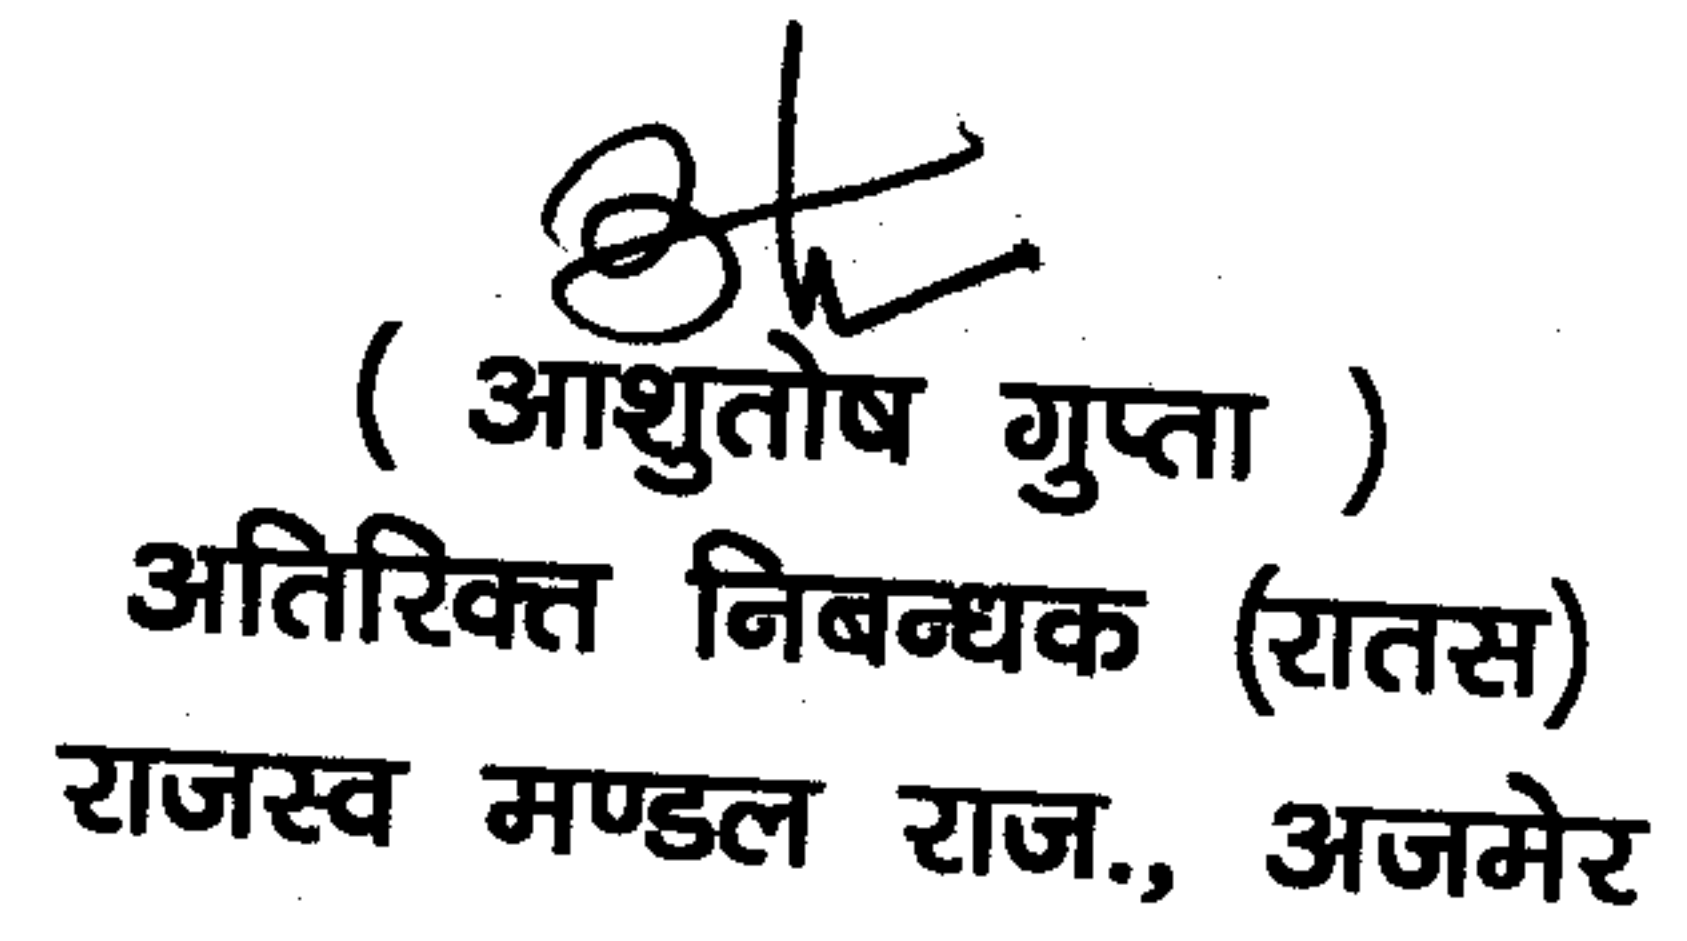 ( आशुतोष गुप्ता )
अतिरिक्त निबन्धक (रातस)
राजस्व मण्डल राज., अजमेर